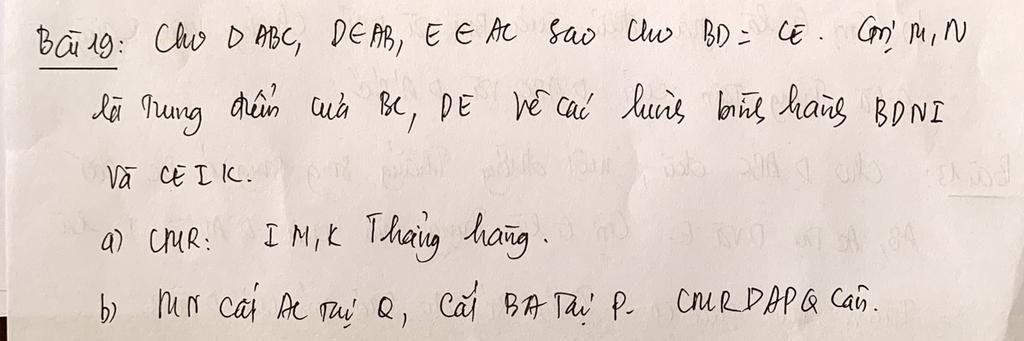 Bài 19: Cho Δ ABC, D∈AB, E ∈ AC sao cho BD = CE. Gọi M, N
là trung điểm của BC, DE vẽ các hình bình hàng BDNI
và CEIK.
a) CMR: I M, K Thẳng hàng.
b) MN cắt AC tại Q, cắt BA tại P. CMR Δ APQ cân.